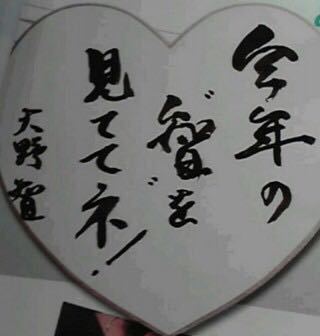 今年の
〝智〟を
見ててネ!
大野智